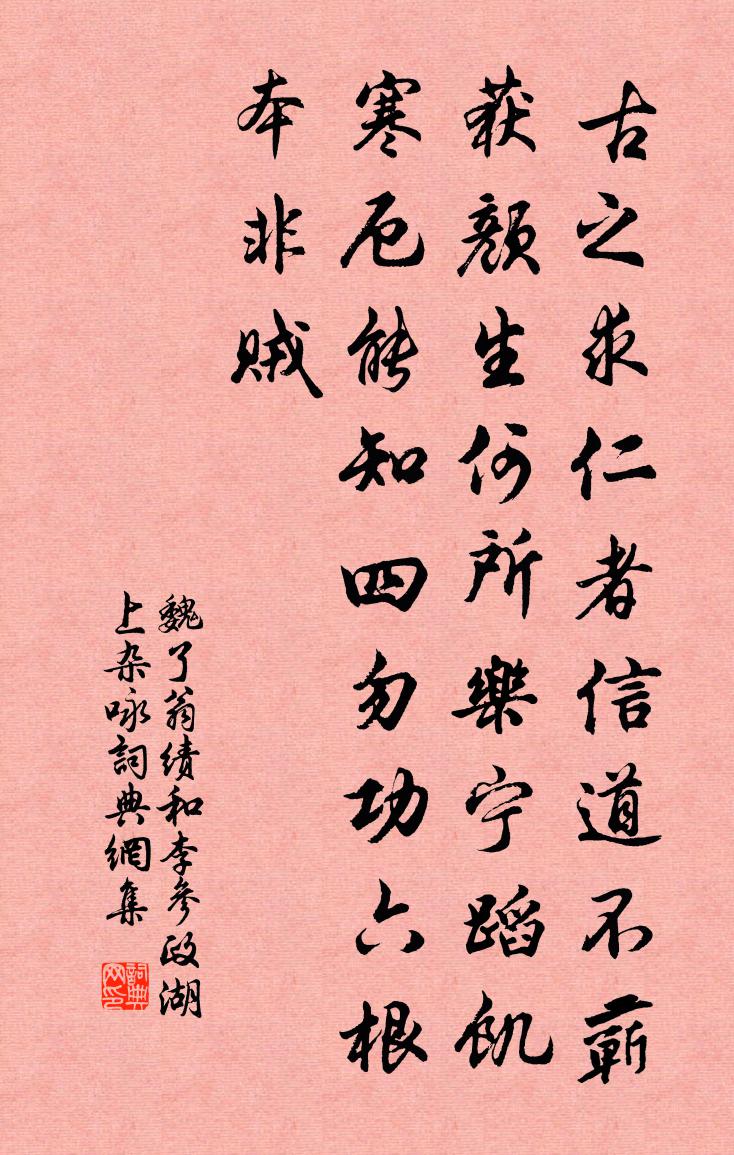 古之求仁者信道不蕲
获颜生何所樂宁蹈飢
寒厄能知四勿功六根
本非贼
魏了翁续和李參政湖
上杂咏詞典網集
詞典网印